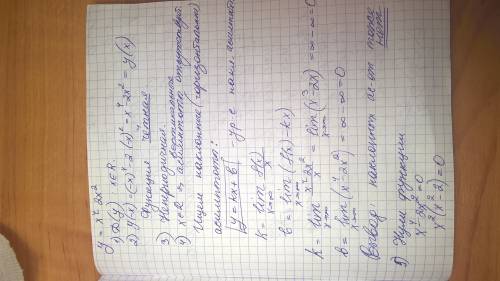 y = x⁴ - 2x²
1) D(y) x∈R
2) y(-x) = (-x)⁴ - 2(-x)² = x⁴ - 2x² = y(x)
функция чётная
3) Непериодичная
4) x∈R ⇒ вертикальные асимптоты отсутствуют.
Ищем наклонные (горизонтальные)
асимптоты:
y = kx + b - ур-е накл. асимптоты
k = lim x→∞ f(x)/x
b = lim x→∞ (f(x) - kx)
k = lim x→∞ (x⁴ - 2x²)/x = lim x→∞ (x³ - 2x) = ∞ - ∞ = 0
b = lim x→∞ (x⁴ - 2x²) = ∞ - ∞ = 0
Вывод: наклонит ас-от тоже нет.
5) Нули функции
x⁴ - 2x² = 0
x²(x² - 2) = 0